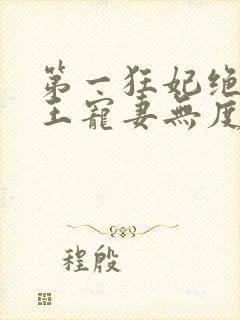 第一狂妃绝
王寵妻無度
程殷